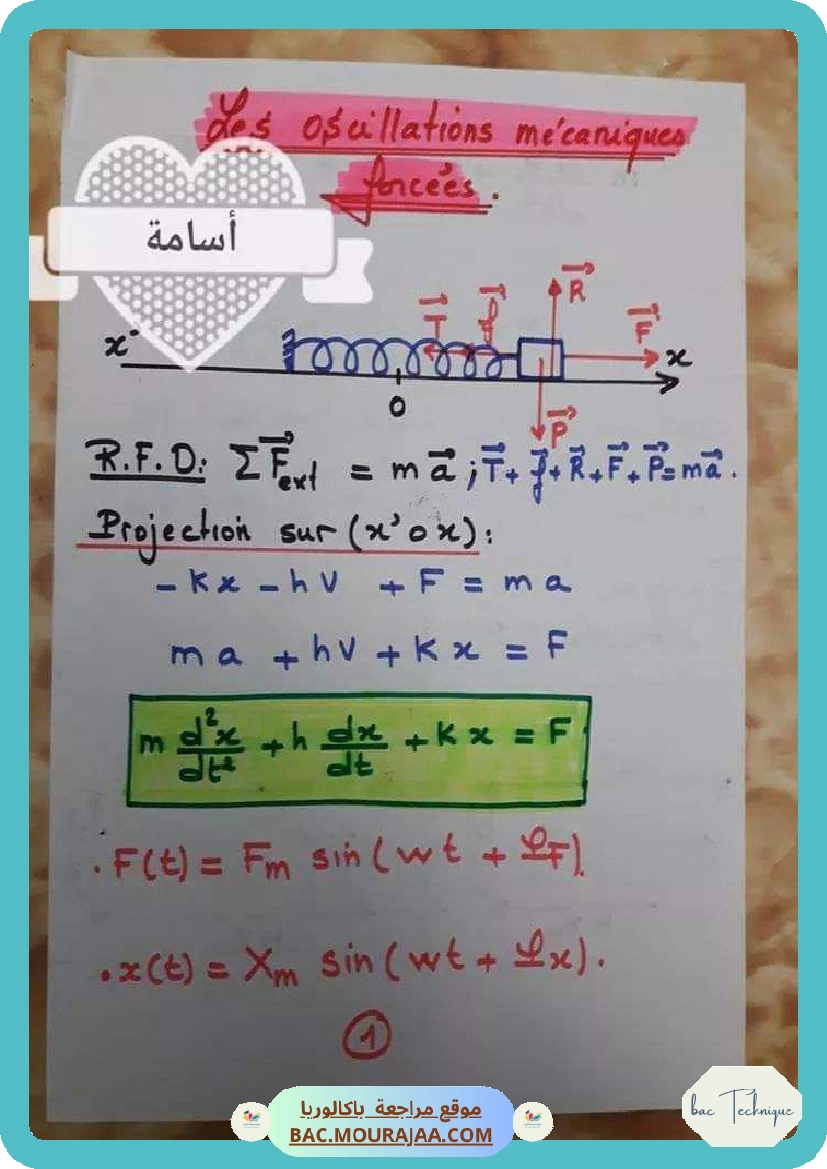 Les oscillations mécaniques
forcées.
أسامة
R
T f F
x' x
O
P
R.F.D: ΣF⃗ext = m a⃗ ; T⃗ + f⃗ + R⃗ + F⃗ + P⃗ = m a⃗.
Projection sur (x'ox):
- Kx - hV + F = ma
ma + hV + Kx = F
m d²x/dt² + h dx/dt + Kx = F
. F(t) = Fm sin(wt + φF).
. x(t) = Xm sin(wt + φx).
1
موقع مراجعة باكالوريا
BAC.MOURAJAA.COM
bac Technique